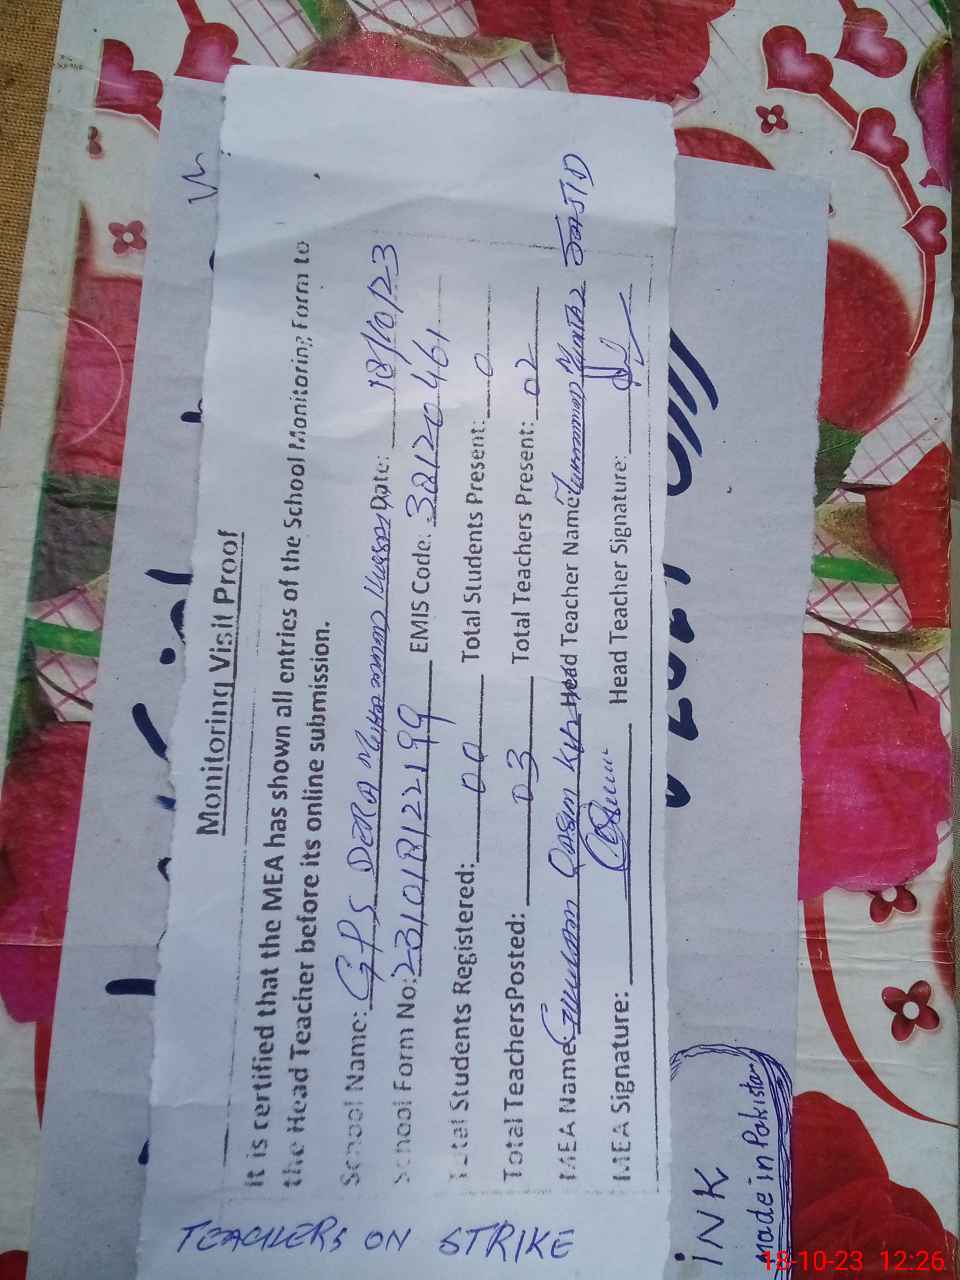 Monitoring Visit Proof
It is certified that the MEA has shown all entries of the School Monitoring Form to
the Head Teacher before its online submission.
School Name: GPS DERA MUHAMMAD Date: 18/10/23
School Form No: EMIS Code: 38120461
Total Students Registered: 00 Total Students Present: 0
Total TeachersPosted: 03 Total Teachers Present: 02
MEA Name Ghulam Qasim Head Teacher Name: Muhammad
MEA Signature: Head Teacher Signature:
TEACHERS ON STRIKE
iNK
Made in Pakistan
18-10-23 12:26